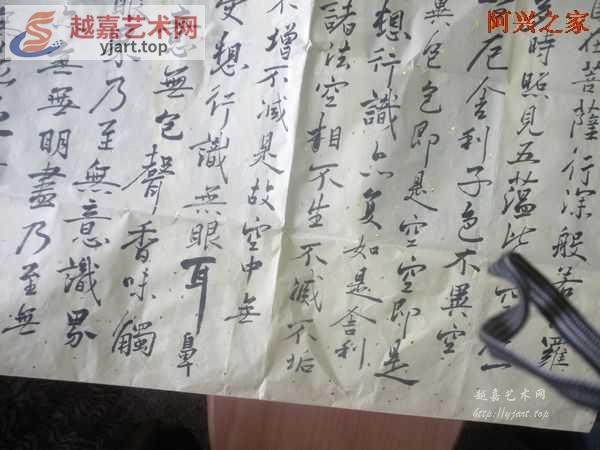 越嘉艺术网
yjart.top
阿兴之家
在菩薩行深般若羅
時照見五蕴皆空一
厄舍利子色不異空
異色色即是空空即是
想行識亦复如是舍利
諸法空相不生不滅不垢
不增不减是故空中無
受想行識無眼耳鼻
意無色聲香味觸
界乃至無意識界
無無明盡乃至無
越嘉艺术网
http://yjart.top